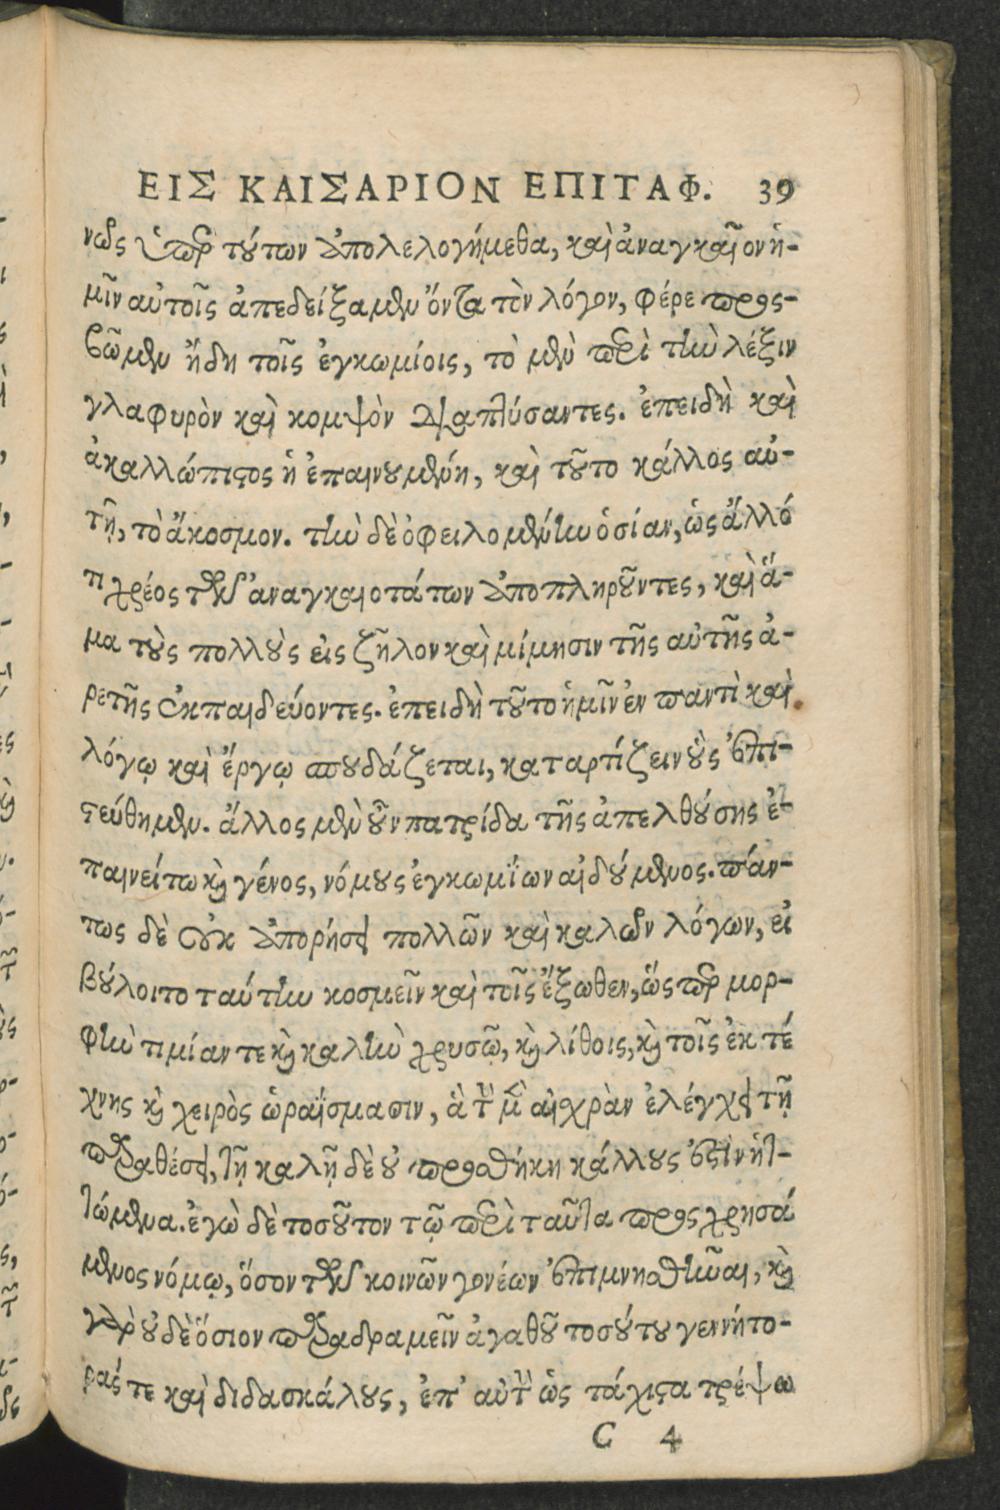 ΕΙΣ ΚΑΙΣΑΡΙΟΝ ΕΠΙΤΑΦ. 39
νῶς ὑπὲρ τούτων ἀπολελογήμεθα, καὶ ἀναγκαῖον ἡ-
μῖν αὐτοῖς ἀπεδείξαμεν ὄντα τὸν λόγον, φέρε προσ-
βῶμεν ἤδη τοῖς ἐγκωμίοις, τὸ μὲν περὶ τὴν λέξιν
γλαφυρὸν καὶ κομψὸν διαπτύσαντες. ἐπειδὴ καὶ
ἀκαλλώπιστος ἡ ἐπαινουμένη, καὶ τοῦτο κάλλος αὐ-
τῇ, τὸ ἄκοσμον. τὴν δὲ ὀφειλομένην ὁσίαν, ὡς ἄλλό
τι χρέος τῶν ἀναγκαιοτάτων ἀποπληροῦντες, καὶ ἅ-
μα τοὺς πολλοὺς εἰς ζῆλον καὶ μίμησιν τῆς αὐτῆς ἀ-
ρετῆς ἐκπαιδεύοντες. ἐπειδὴ τοῦτο ἡμῖν ἐν παντὶ καὶ
λόγῳ καὶ ἔργῳ σπουδάζεται, καταρτίζειν οὓς ἐπι-
στεύθημεν. ἄλλος μὲν οὖν πατρίδα τῆς ἀπελθούσης ἐ-
παινείτω καὶ γένος, νόμους ἐγκωμΐων αἰδούμενος. πάν-
τως δὲ οὐκ ἀπορήσει πολλῶν καὶ καλῶν λόγων, εἰ
βούλοιτο ταύτην κοσμεῖν καὶ τοῖς ἔξωθεν, ὥσπερ μορ-
φὴν τιμίαν τε καὶ καλὴν χρυσῷ, καὶ λίθοις, καὶ τοῖς ἐκ τέ
χνης καὶ χειρὸς ὡραΐσμασιν, ἃ τὴν μὲν αἰσχρὰν ἐλέγχει τῇ
παραθέσει, τῇ καλῇ δὲ οὐ προσθήκη κάλλους ἐστὶν ἡτ-
τώμενα. ἐγὼ δὲ τοσοῦτον τῷ περὶ ταῦτα προσχρησά
μενος νόμῳ, ὅσον τῶν κοινῶν γονέων ἐπιμνησθῆναι, καὶ
γὰρ οὐδὲ ὅσιον παραδραμεῖν ἀγαθοῦ τοσούτου γεννήτο-
ράς τε καὶ διδασκάλους, ἐπ' αὐτὴν ὡς τάχιστα τρέψω
C 4